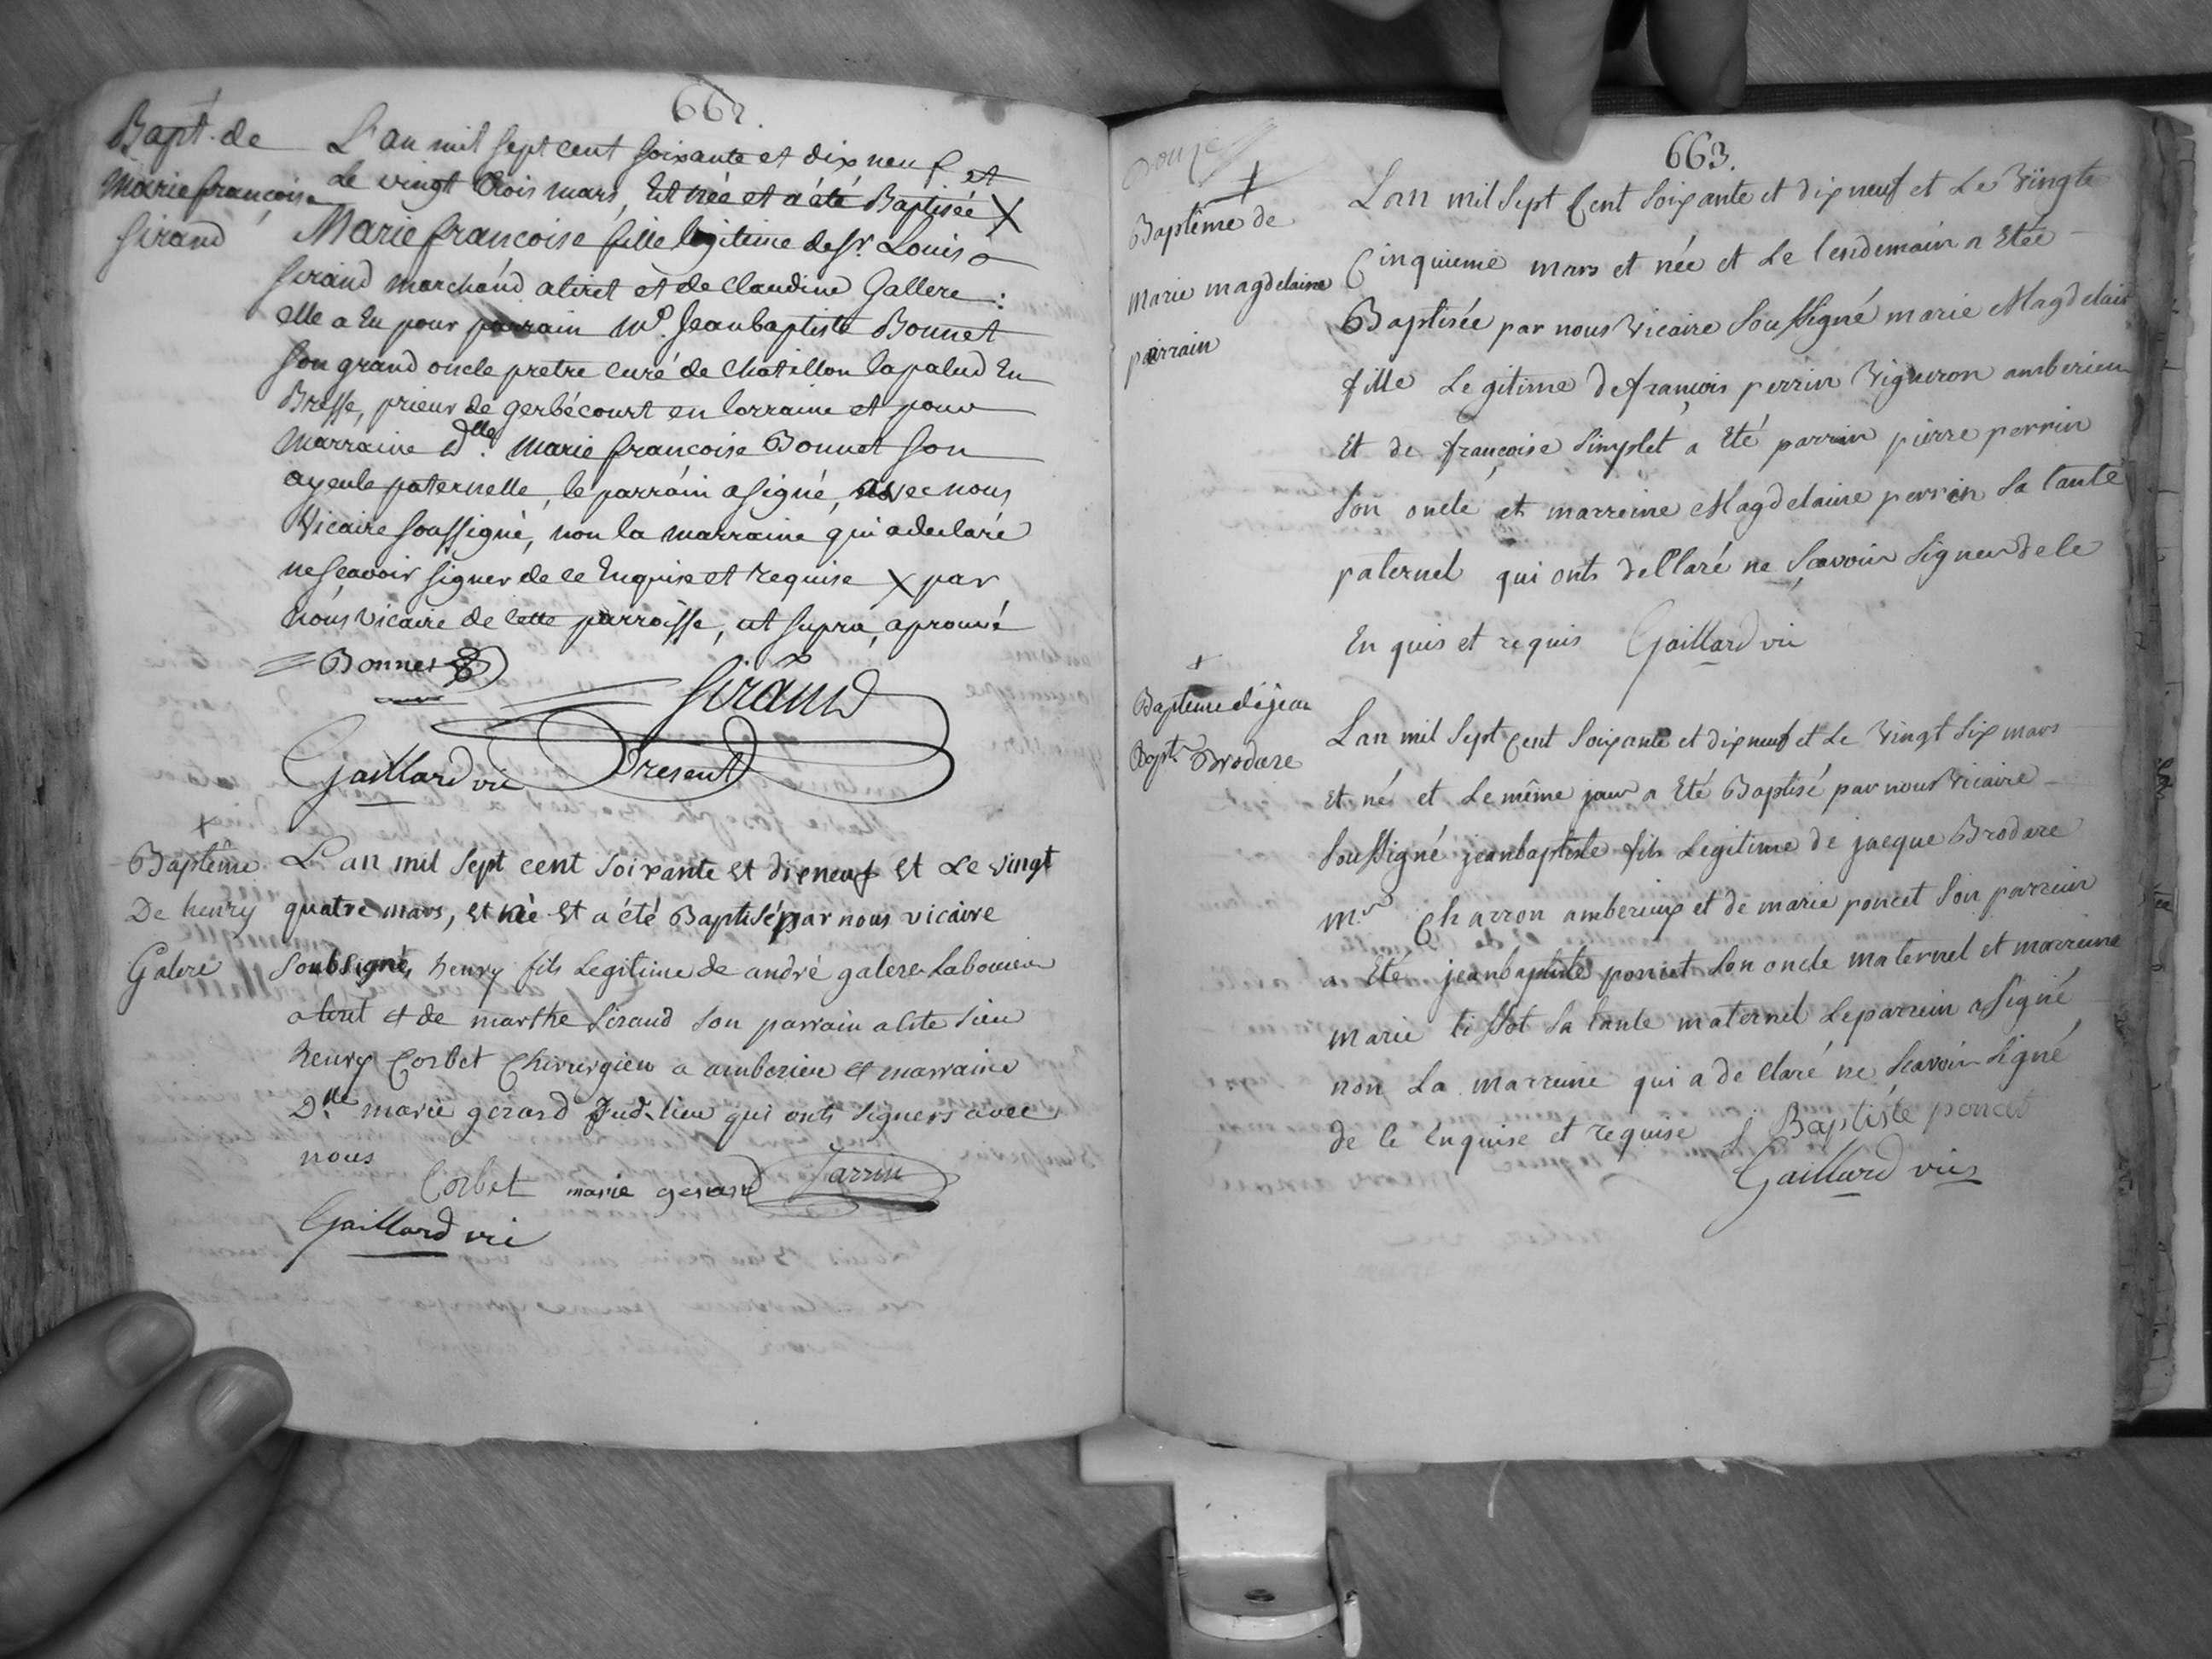 662.
Bapt. de
Marie françoise
Sirand
L'an mil sept cent soixante et dix neuf et
le vingt trois mars, Est née et a été Baptisée X
Marie françoise fille legitime de Sr. Louis
Sirand marchand a tiret et de Claudine Gallere :
elle a Eu pour parrain Mre. Jean baptiste Bonnet
son grand oncle pretre curé de Chatillon la palud En
Bresse, prieur de gerbécourt en lorraine et pour
Marraine dlle. Marie francoise Bonnet son
ayeule paternelle, le parrain a signé, avec nous
Vicaire soussigné, non la marraine qui a declaré
ne sçavoir signer de ce Enquise et requise X par
nous vicaire de cette parroisse, ut supra, aprouvé
Bonnet
Sirand
Gaillard vic Present
Baptême
De henry
Galere
L'an mil sept cent soixante et dix neuf et Le vingt
quatre mars, est né et a été Baptisé par nous vicaire
soubsigné, henry fils Legitime de andré galere Laboureur
a tiret et de marthe Siraud son parrain a ete sieu
henry Corbet Chirurgien a amberieu et marraine
Dlle marie gerard Jud. lieu qui onts signers avec
nous
Corbet marie gerard Jarrin
Gaillard vic
663.
Douze
Baptême de
Marie magdelaine
perrain
L'an mil sept Cent soixante et dix neuf et Le Vingte
Cinquieme mars et née et Le lendemain a Etée
Baptisée par nous Vicaire Soussigné marie Magdelain
fille Legitime de françois perrin Vigneron amberieu
Et de françoise Simplet a Eté parrin pierre perrin
Son oncle et marreine Magdelaine perrin Sa tante
paternel qui onts dellaré ne Sçavoir Signer de ce
En quis et requis Gaillard vic
Baptême de jean
Bapte Brodare
L'an mil Sept Cent Soixante et dix neuf et Le Vingt Six mars
Et né et Le même jour a Eté Baptisé par nous Vicaire
Soussigné jeanbaptiste fils Legitime de jacque Brodare
Me Charron amberieux et de marie poncet Son parrein
a Eté jeanbaptiste poncet Son oncle maternel et marreine
marie tissot Sa tante maternel Le parrein a Signé
non La marreine qui a de claré ne Sçavoir Signé
de ce Enquise et requise J Baptiste poncet
Gaillard vic